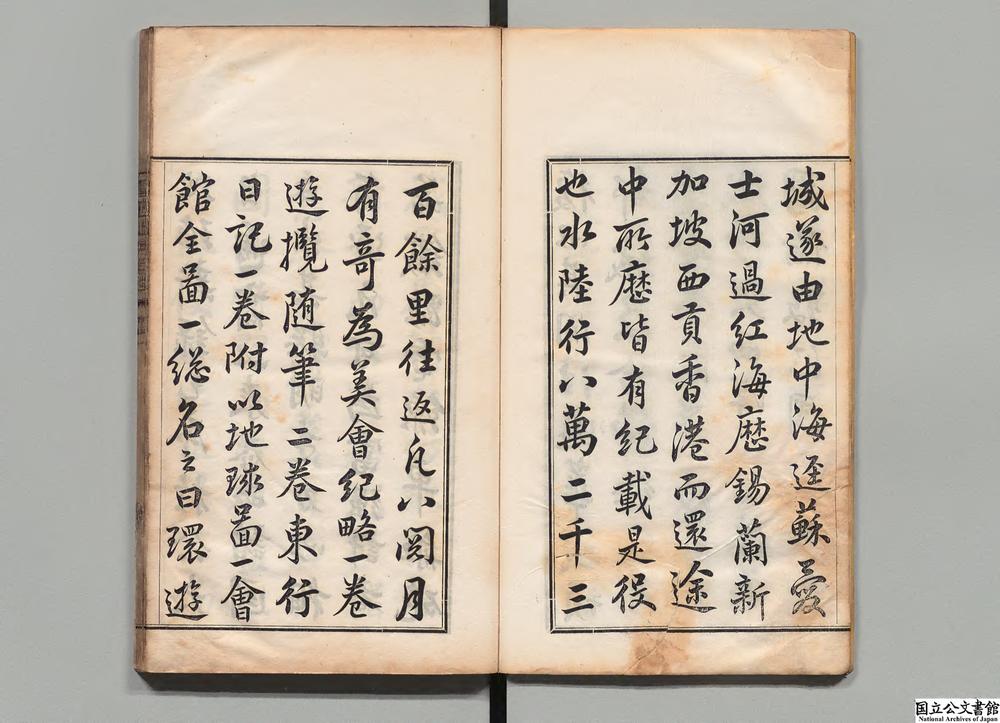 城遂由地中海逕蘇彝
士河過紅海歴錫蘭新
加坡西貢香港而還途
中所歴皆有紀載是役
也水陸行八萬二千三
百餘里往返凡八閱月
有奇為美會紀略一卷
遊攬隨筆二卷東行
日記一卷附以地球啚一會
館全啚一總名之曰環遊
国立公文書館
National Archives of Japan